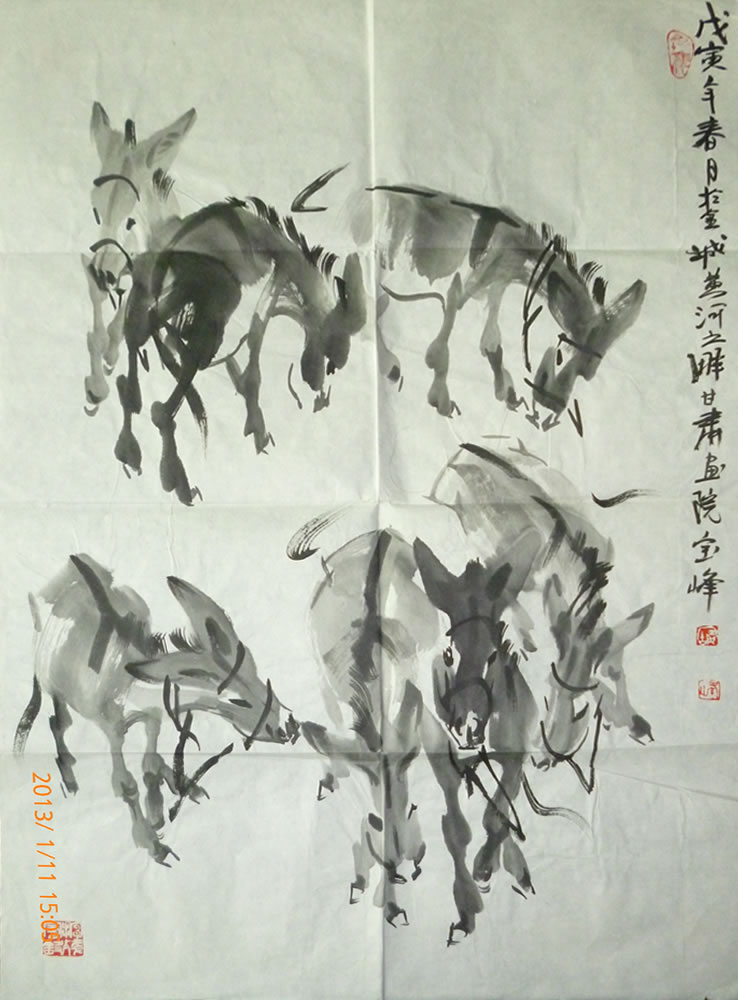 戊寅年春月于金城黄河之畔甘肃画院宝峰
2013/ 1/11 15:0